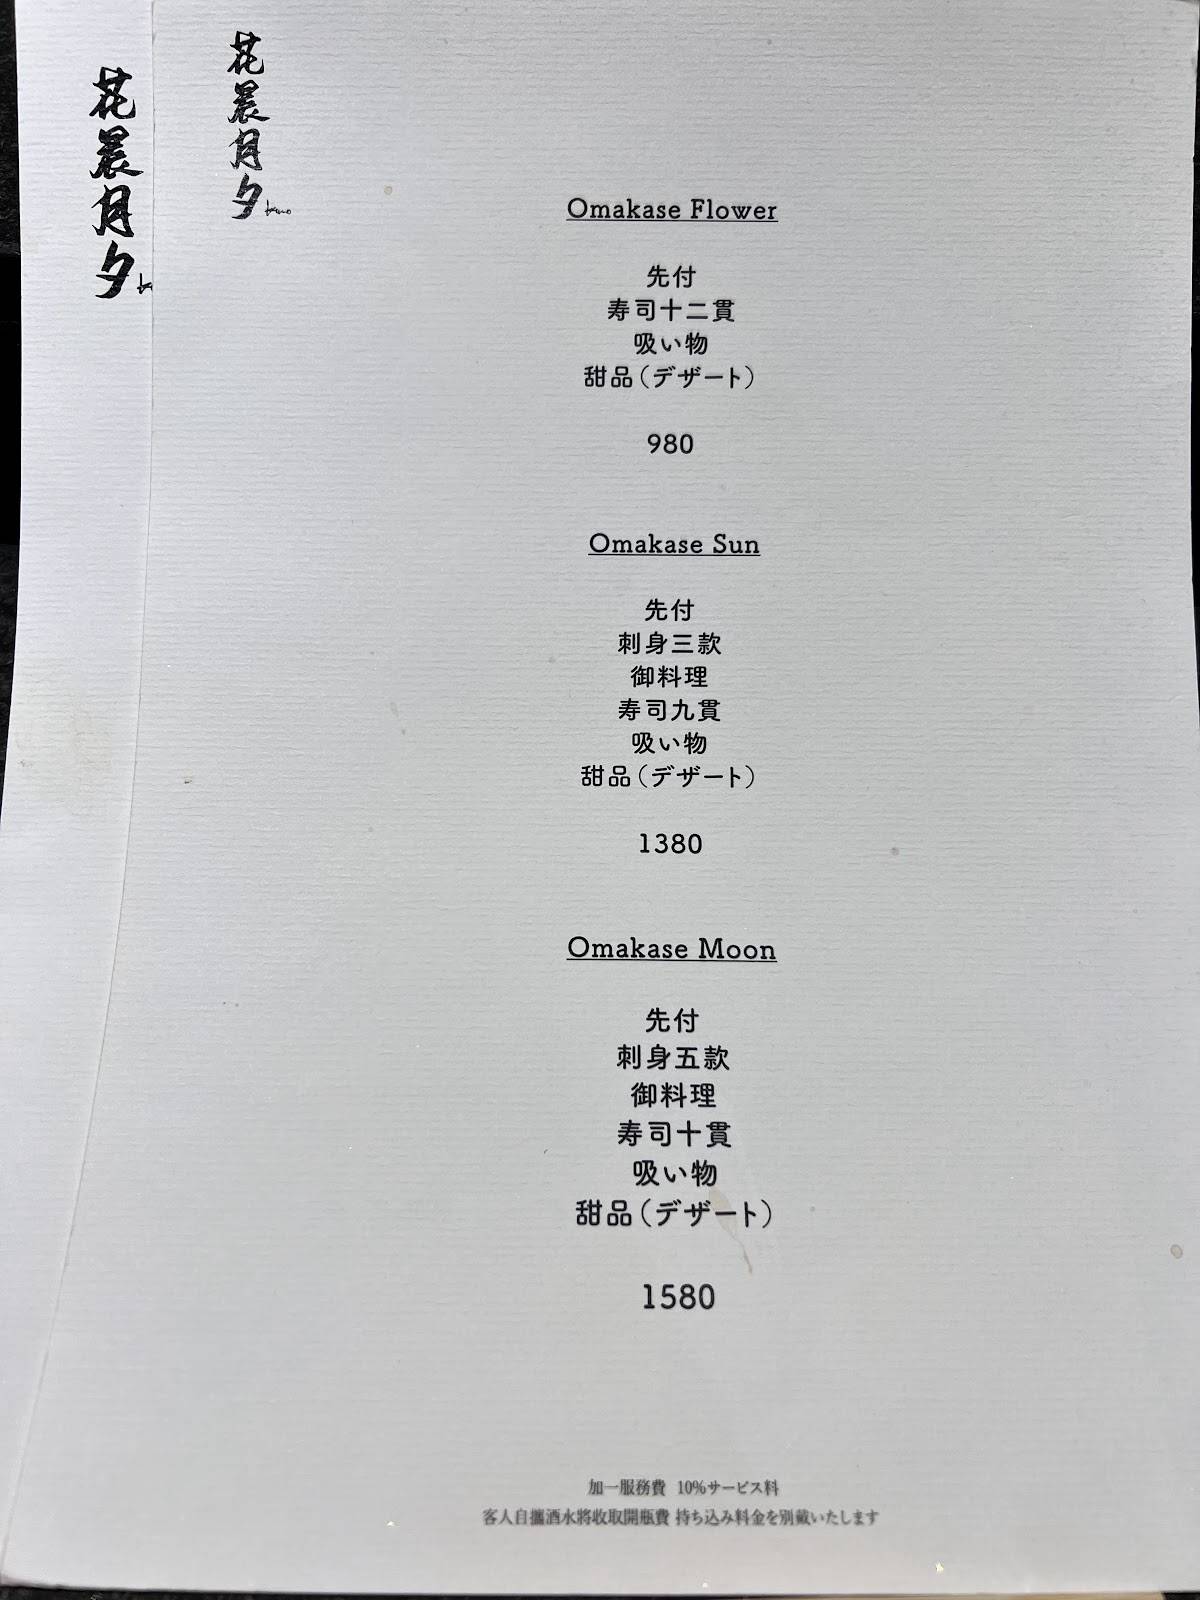 花晨月夕
花晨月夕
Omakase Flower
先付
寿司十二貫
吸い物
甜品（デザート）
980
Omakase Sun
先付
刺身三款
御料理
寿司九貫
吸い物
甜品（デザート）
1380
Omakase Moon
先付
刺身五款
御料理
寿司十貫
吸い物
甜品（デザート）
1580
加一服務費 10%サービス料
客人自攜酒水將收取開瓶費 持ち込み料金を別戴いたします